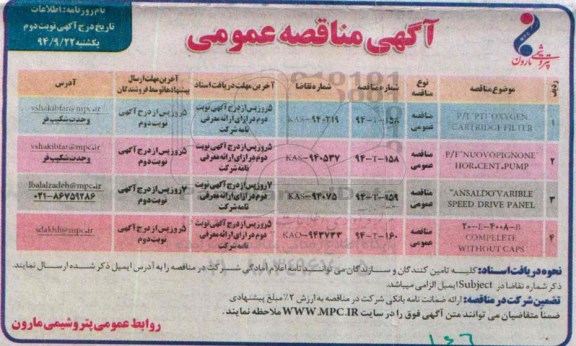 نام روزنامه: اطلاعات
تاریخ درج آگهی نوبت دوم
یکشنبه ۹۴/۹/۲۲
آگهی مناقصه عمومی
پتروشیمی مارون
ردیف
موضوع مناقصه
نوع مناقصه
شماره مناقصه
شماره تقاضا
آخرین مهلت دریافت اسناد
آخرین مهلت ارسال پیشنهادها توسط فروشندگان
آدرس
۱
P/F PTI OXYGEN
CARTRIDGE FILTER
مناقصه عمومی
۹۴-T-۱۵۸
۵ روز پس از درج آگهی نوبت دوم در ازای ارائه معرفی نامه شرکت
۵ روز پس از درج آگهی نوبت دوم
vshakibfar@mpc.ir
وحدت شکیب فر
۲
P/F"NUOVOPIGNONE"
HOR.CENT.PUMP
مناقصه عمومی
۹۴-T-۱۵۸
KAS-۹۴۰۵۳۷
۵ روز پس از درج آگهی نوبت دوم در ازای ارائه معرفی نامه شرکت
۵ روز پس از درج آگهی نوبت دوم
vshakibfar@mpc.ir
وحدت شکیب فر
۳
"ANSALDO"VARIBLE
SPEED DRIVE PANEL
مناقصه عمومی
۹۴-T-۱۵۹
۷ روز پس از درج آگهی نوبت دوم در ازای ارائه معرفی نامه شرکت
۷ روز پس از درج آگهی نوبت دوم
lbalalzadeh@mpc.ir
۰۲۱-۸۶۷۵۹۲۸۶
۴
۲۰-E-۴۰۰۸-B
COMPLLETE
WITHOUT CAPS
مناقصه عمومی
۹۴-T-۱۶۰
KAO-۹۴۳۷۳۳
۵ روز پس از درج آگهی نوبت دوم در ازای ارائه معرفی نامه شرکت
۵ روز پس از درج آگهی نوبت دوم
sdakhli@mpc.ir
نحوه دریافت اسناد: کلیه تامین کنندگان و سازندگان می توانند نامه اعلام آمادگی شرکت در مناقصه را به آدرس ایمیل ذکر شده ارسال نمایند.
ذکر شماره تقاضا در Subject ایمیل الزامی میباشد.
تضمین شرکت در مناقصه: ارائه ضمانت نامه بانکی شرکت در مناقصه به ارزش ۲٪ مبلغ پیشنهادی
ضمناً متقاضیان می توانند متن آگهی فوق را در سایت WWW.MPC.IR ملاحظه نمایند.
روابط عمومی پتروشیمی مارون
۱۴۶